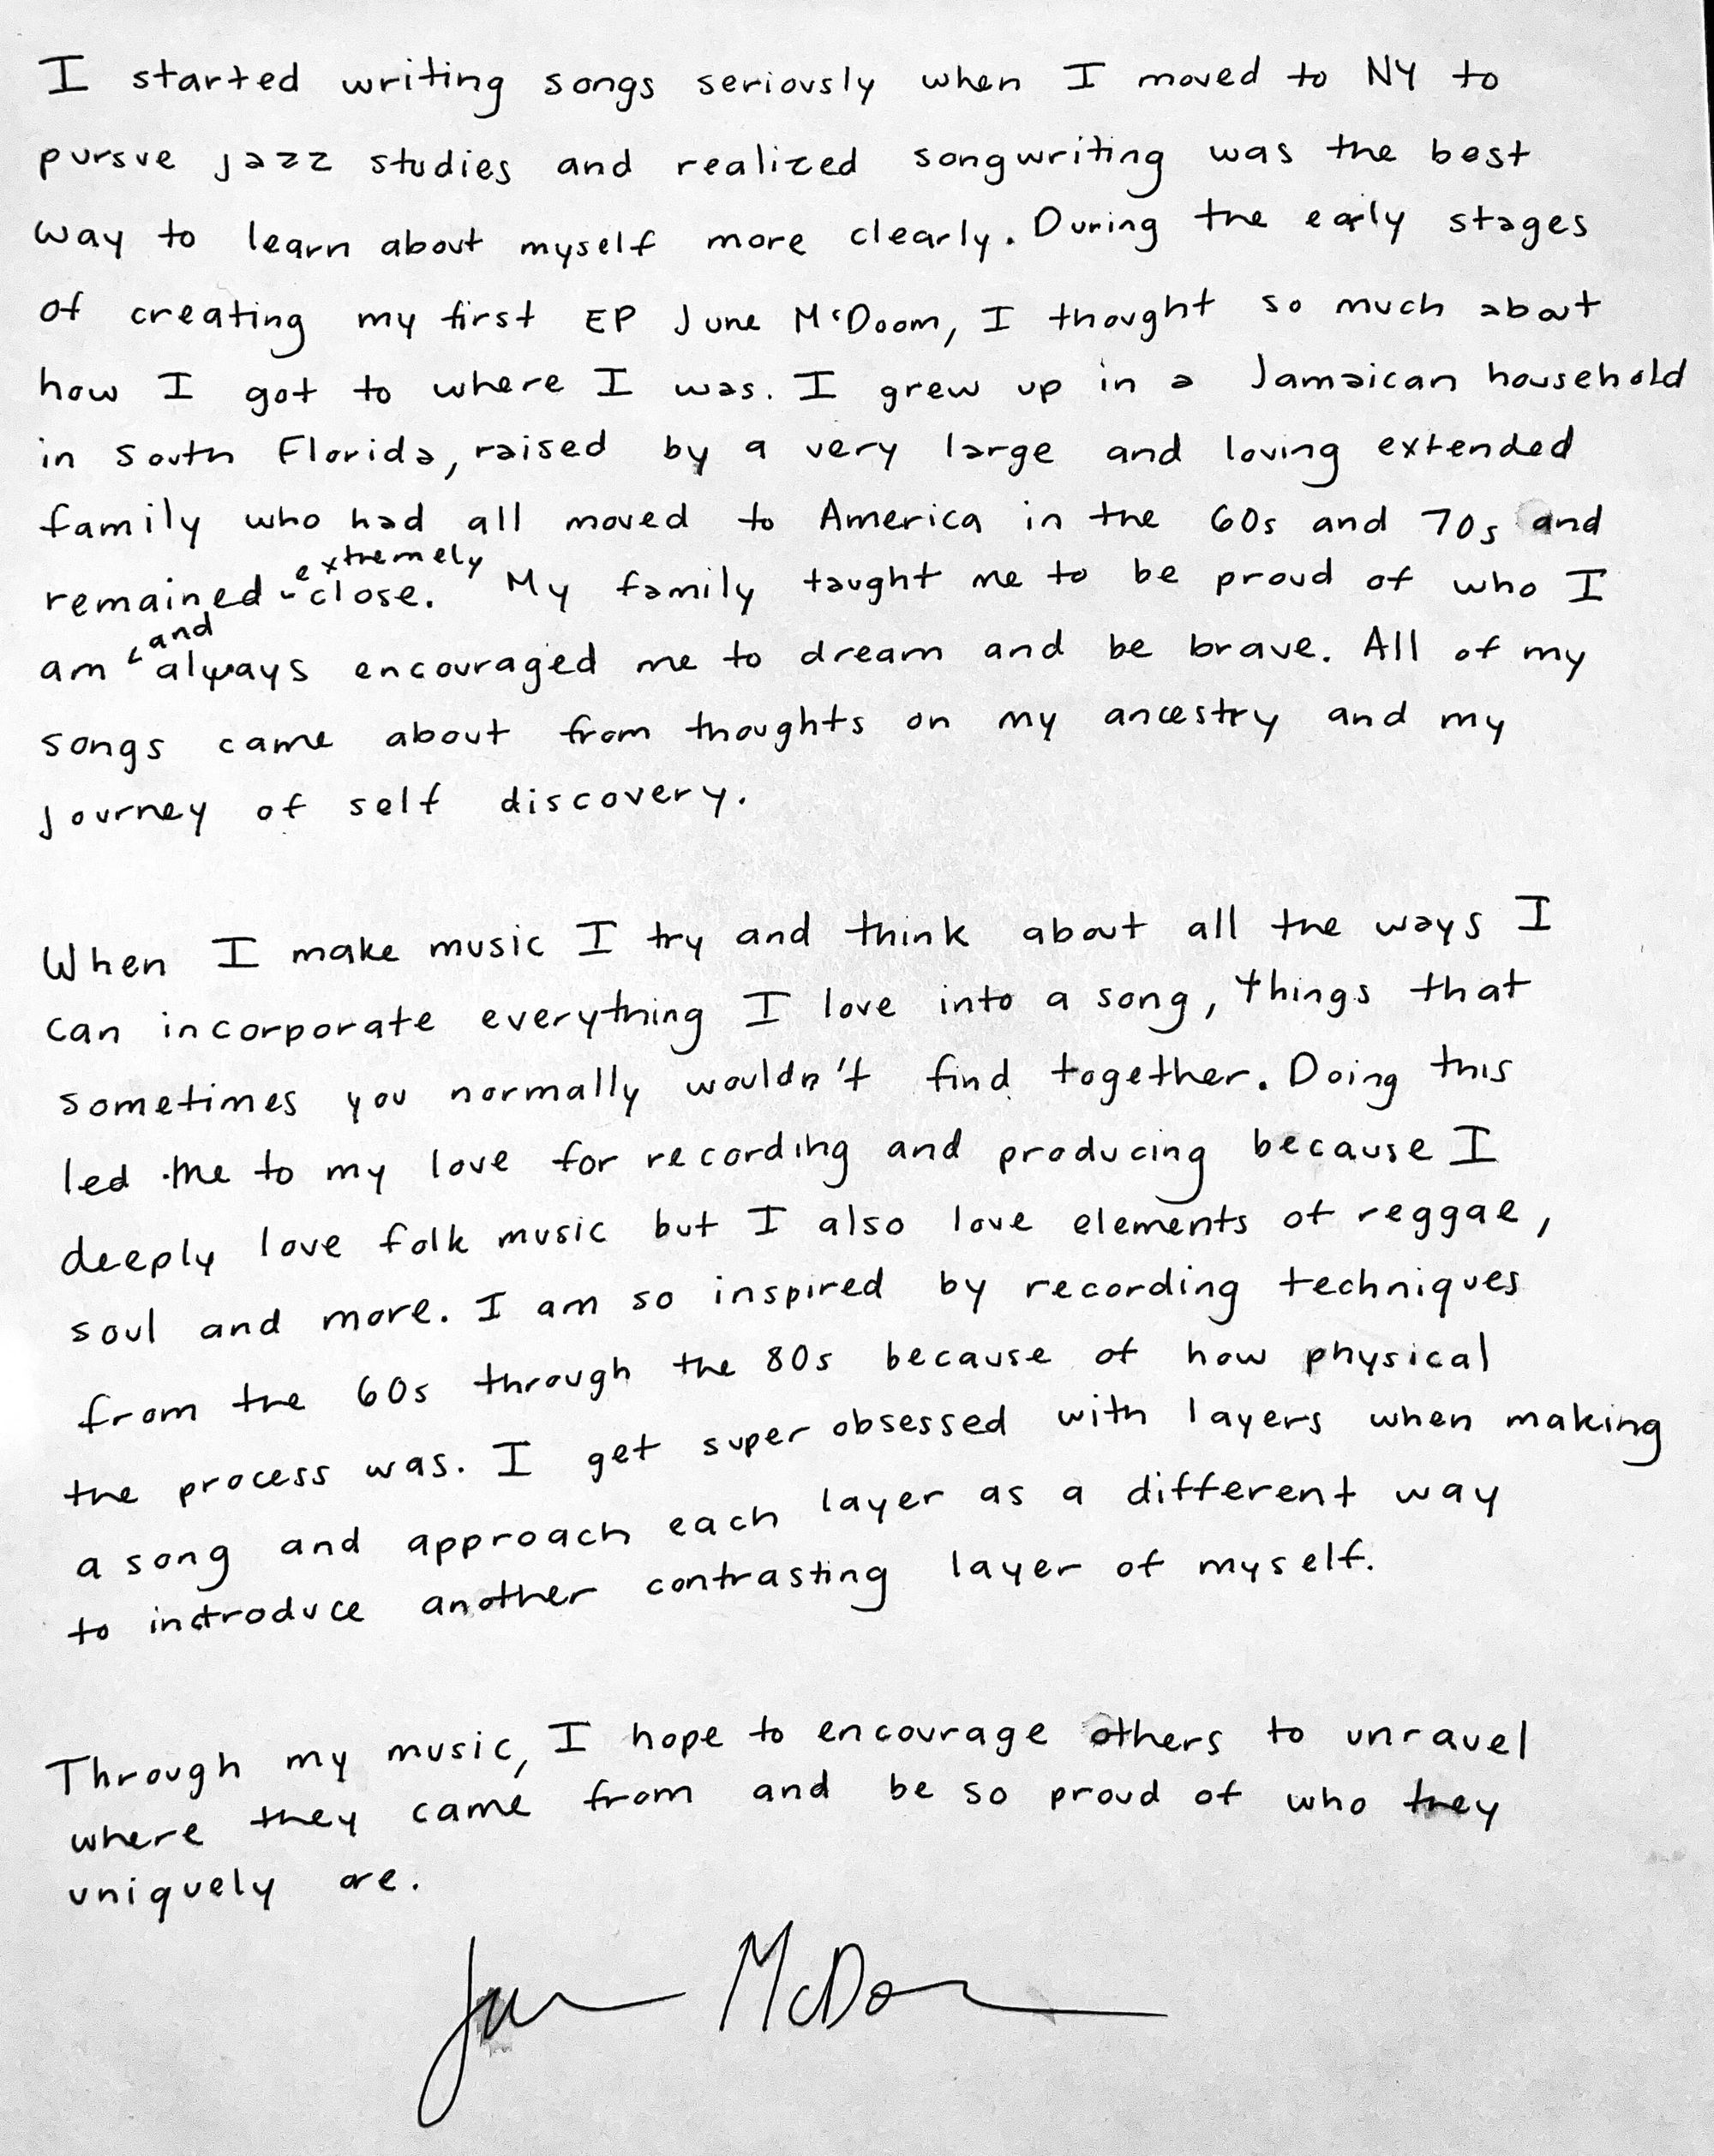 I started writing songs seriously when I moved to NY to
pursue jazz studies and realized songwriting was the best
way to learn about myself more clearly. During the early stages
of creating my first EP June McDoom, I thought so much about
how I got to where I was. I grew up in a Jamaican household
in South Florida, raised by a very large and loving extended
family who had all moved to America in the 60s and 70s and
remained extremely close. My family taught me to be proud of who I
am and always encouraged me to dream and be brave. All of my
songs came about from thoughts on my ancestry and my
journey of self discovery.
When I make music I try and think about all the ways I
can incorporate everything I love into a song, things that
sometimes you normally wouldn't find together. Doing this
led me to my love for recording and producing because I
deeply love folk music but I also love elements of reggae,
soul and more. I am so inspired by recording techniques
from the 60s through the 80s because of how physical
the process was. I get super obsessed with layers when making
a song and approach each layer as a different way
to introduce another contrasting layer of myself.
Through my music, I hope to encourage others to unravel
where they came from and be so proud of who they
uniquely are.
June McDoom